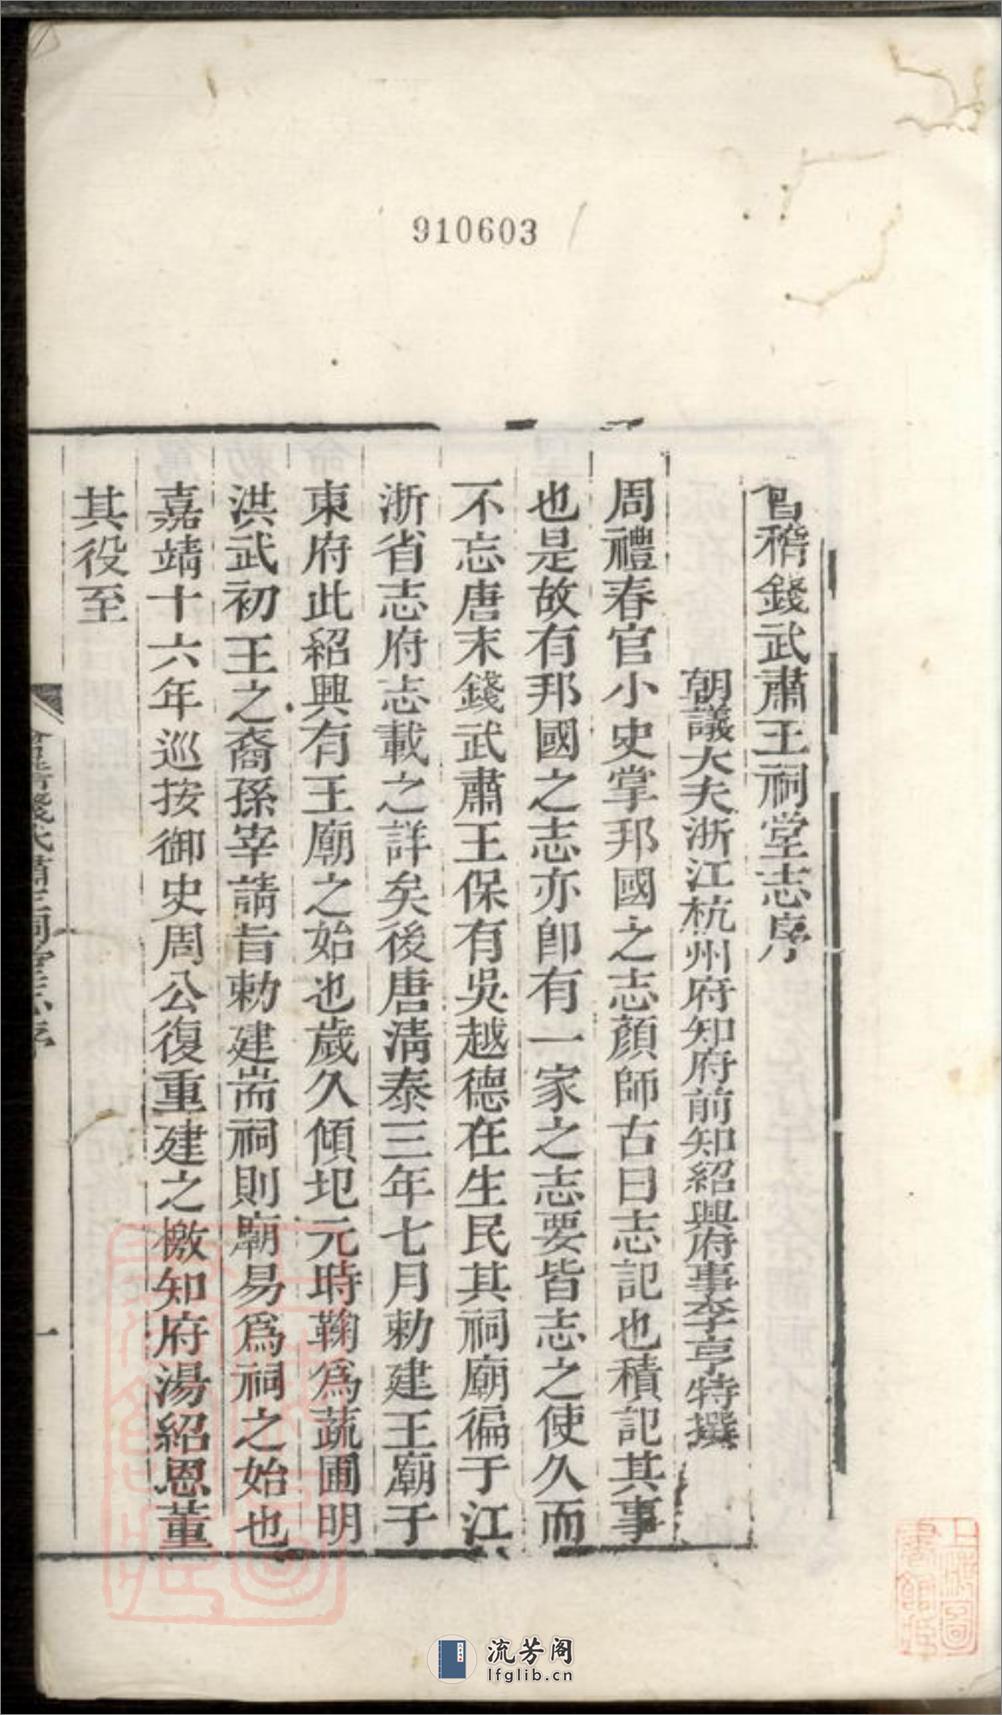 910603
會稽錢武肅王祠堂志序
朝議大夫浙江杭州府知府前知紹興府事李亨特撰
周禮春官小史掌邦國之志顏師古曰志記也積記其事
也是故有邦國之志亦卽有一家之志要皆志之使久而
不忘唐末錢武肅王保有吳越德在生民其祠廟徧于江
浙省志府志載之詳矣後唐清泰三年七月勅建王廟于
東府此紹興有王廟之始也歲久傾圯元時鞠爲蔬圃明
洪武初王之裔孫宰請旨勅建耑祠則廟易爲祠之始也
嘉靖十六年巡按御史周公復重建之檄知府湯紹恩董
其役至
會稽錢武肅王祠堂志序
一
上海圖書館藏
上海圖書館藏
流芳阁
lfglib.cn